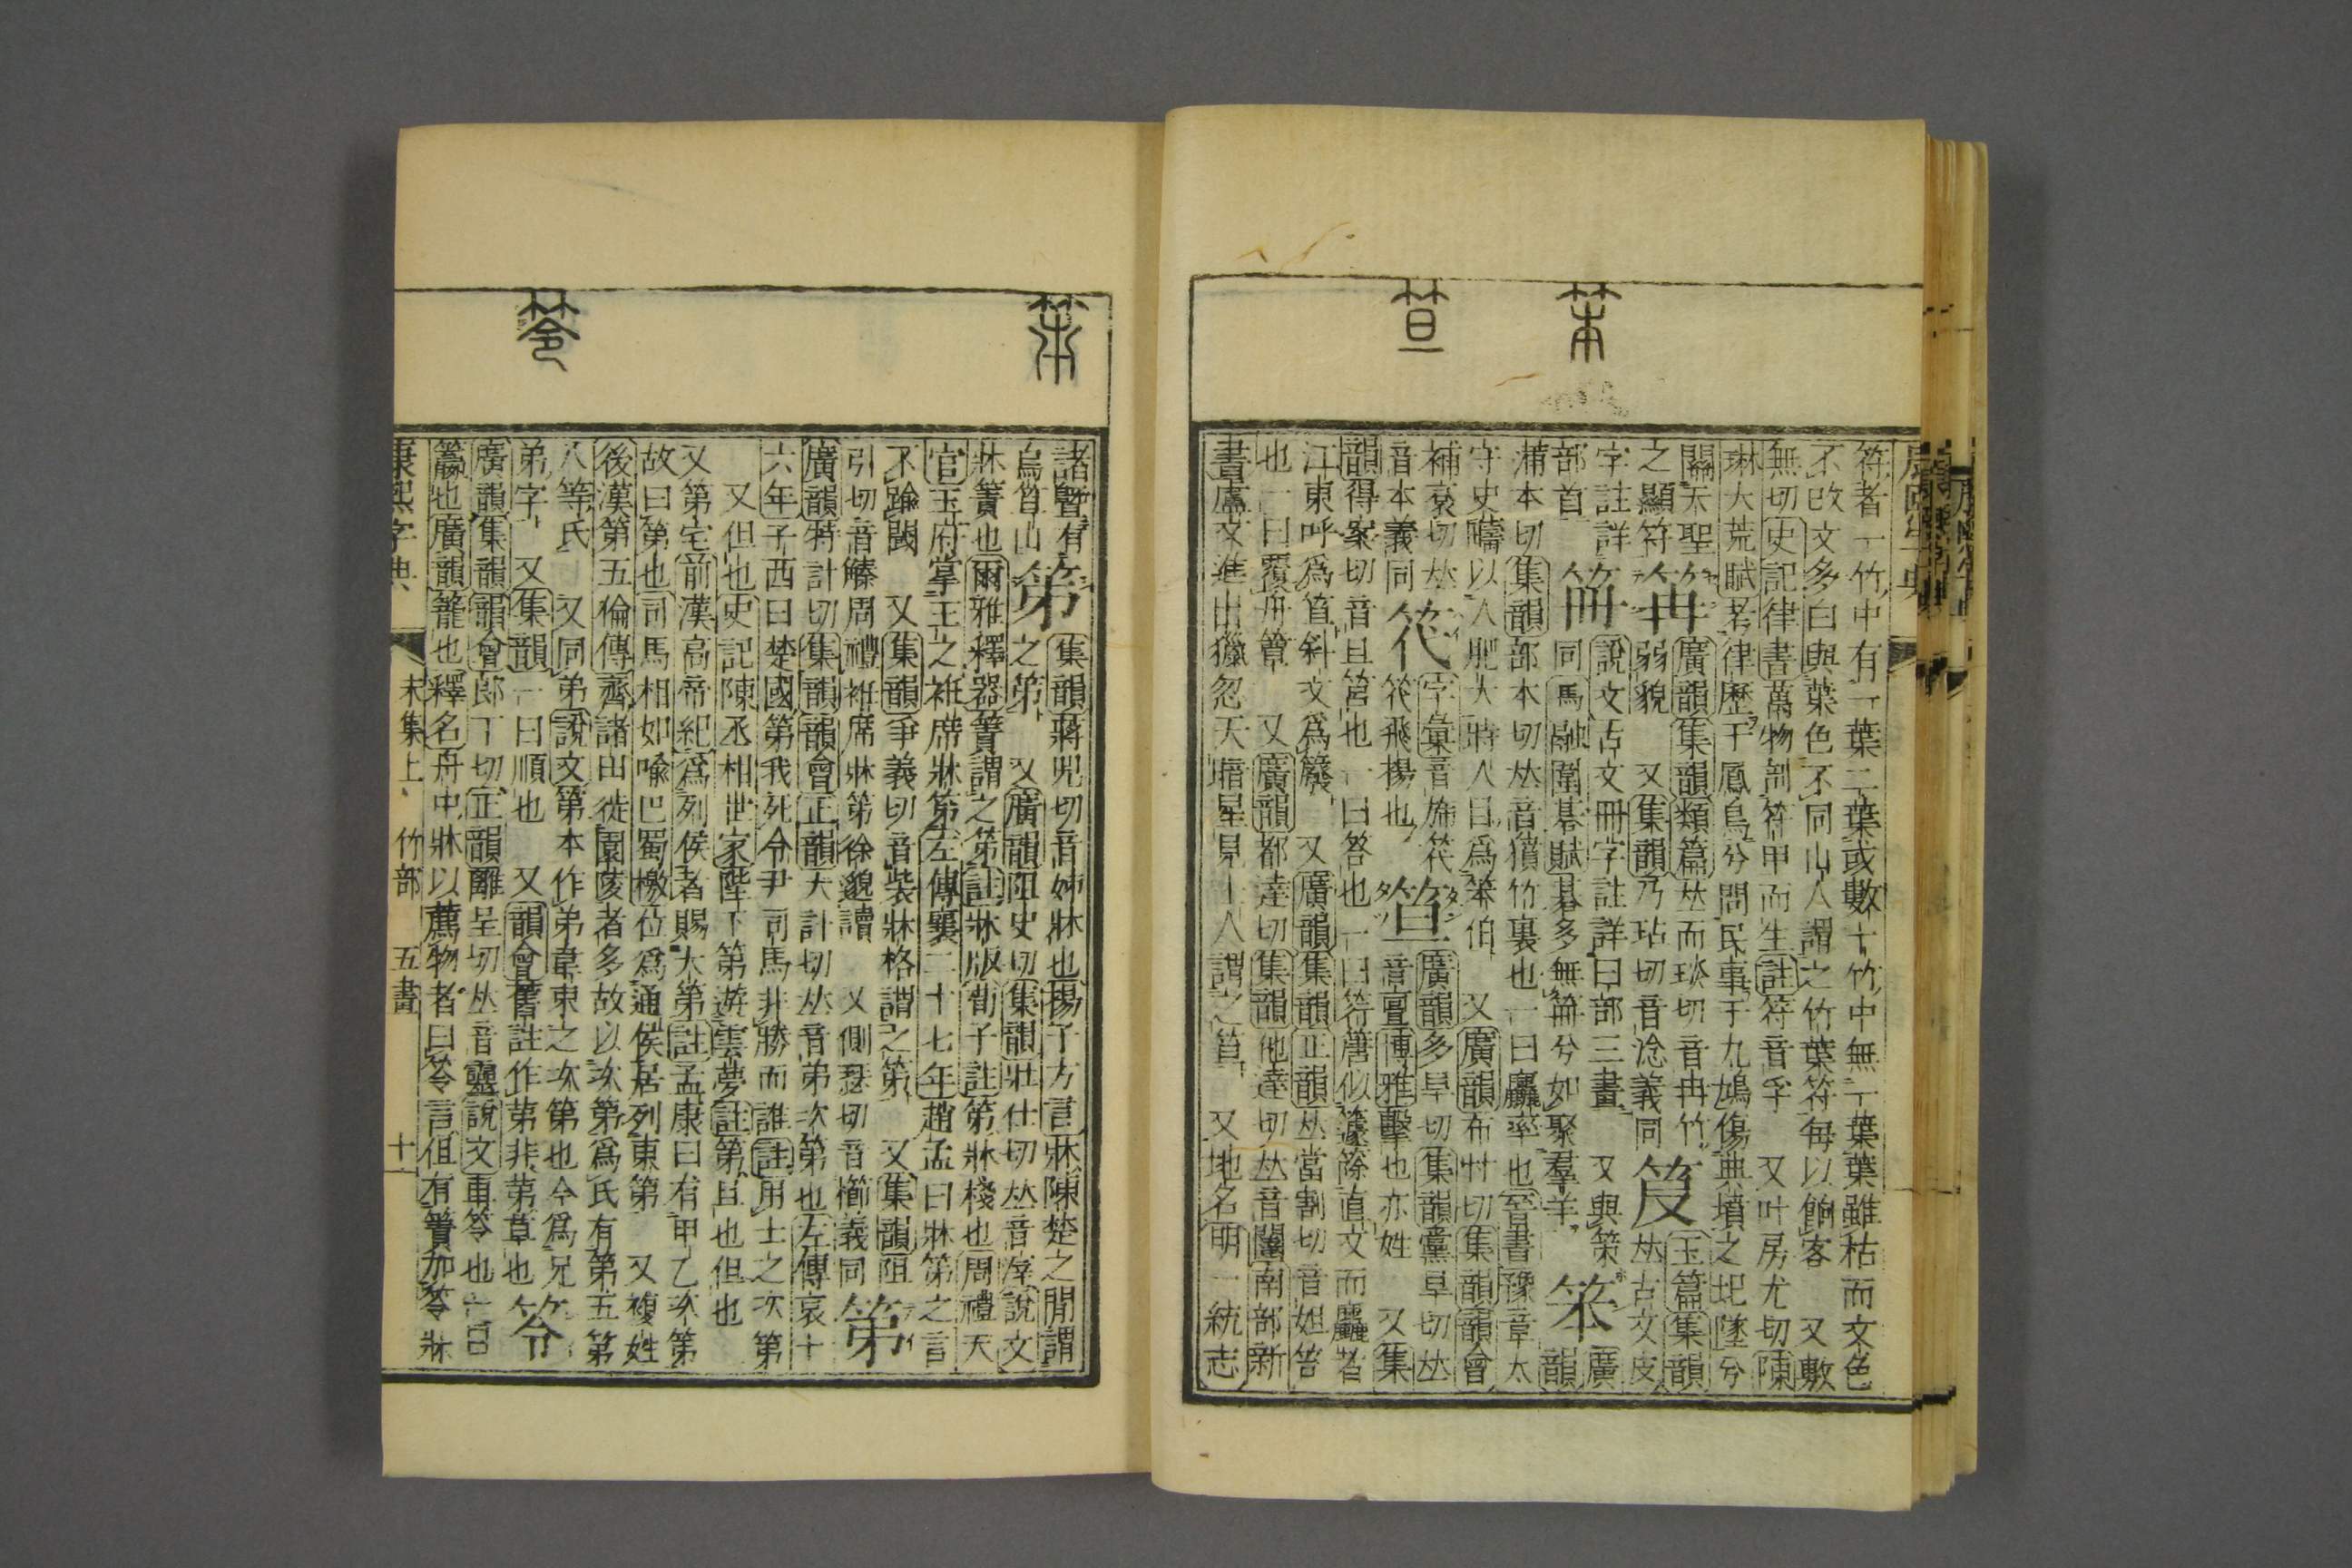 符者一竹中有一葉二葉或數十竹中無一葉葉雖枯而文色
不改文多白與葉色不同山人謂之竹葉符每以餉客 又敷
無切史記律書萬物剖符甲而生註符音孚 又叶房尤切陳
琳大荒賦若律歷于鳳鳥兮問民事于九鳩傷典墳之圯墜兮
關天聖 𥬇 廣韻集韻類篇𠀤而琰切音冉竹 玉篇集韻
之顯符 弱貌 又集韻乃玷切音淰義同 笈 𠀤古文皮
字註詳 說文古文冊字註詳曰部三畫 又與策 廣
部首 笧 同馬融圍棊賦棊多無笧兮如聚羣羊 笨 韻
蒲本切集韻部本切𠀤音獖竹裏也一曰麤率也晉書豫章太
守史疇以人肥大時人目爲笨伯 又廣韻布忖切集韻韻會
補衮切𠀤 字彙音旆 笪 廣韻多旱切集韻黨旱切𠀤
音本義同 飛揚也 音亶博雅擊也亦姓 又集
韻得案切音旦筥也一曰笞也一曰符𥳊似籧篨直文而麤者
江東呼爲笪斜文爲䉬 又廣韻集韻正韻𠀤當割切音妲笞
也一曰覆舟簟 又廣韻都達切集韻他達切𠀤音闥南部新
書盧文進出獵忽天暗星見十人謂之笪 又地名明一統志
諸曁有 笫 集韻蔣兕切音姊牀也揚子方言牀陳楚之閒謂
烏笪山 之笫 又廣韻阻史切集韻壯仕切𠀤音滓說文
牀簀也爾雅釋器簀謂之笫註牀版荀子註笫牀棧也周禮天
官玉府掌王之袵席牀笫左傳襄二十七年趙孟曰牀笫之言
不踰閾 又集韻爭義切音裝牀格謂之笫 又集韻阻
引切音䲐周禮袵席牀第徐邈讀 又側瑟切音櫛義同 第
廣韻特計切集韻韻會正韻大計切𠀤音弟次第也左傳哀十
六年子西曰楚國第我死令尹司馬非勝而誰註用士之次第
又但也史記陳丞相世家陛下第遊雲夢註第且也但也
又第宅前漢高帝紀爲列侯者賜大第註孟康曰有甲乙次第
故曰第也司馬相如喻巴蜀檄位爲通侯居列東第 又複姓
後漢第五倫傳齊諸田徙園陵者多故以次第爲氏有第五第
八等氏 又同弟說文第本作弟韋束之次第也今爲兄
弟字 又集韻一曰順也 又韻會舊註作苐非苐草也 笭
廣韻集韻韻會郎丁切正韻離呈切𠀤音靈說文車笭也一曰
籯也廣韻籠也釋名舟中牀以薦物者曰笭言但有簀如笭牀
康熙字典 未集上 竹部 五畫 十一